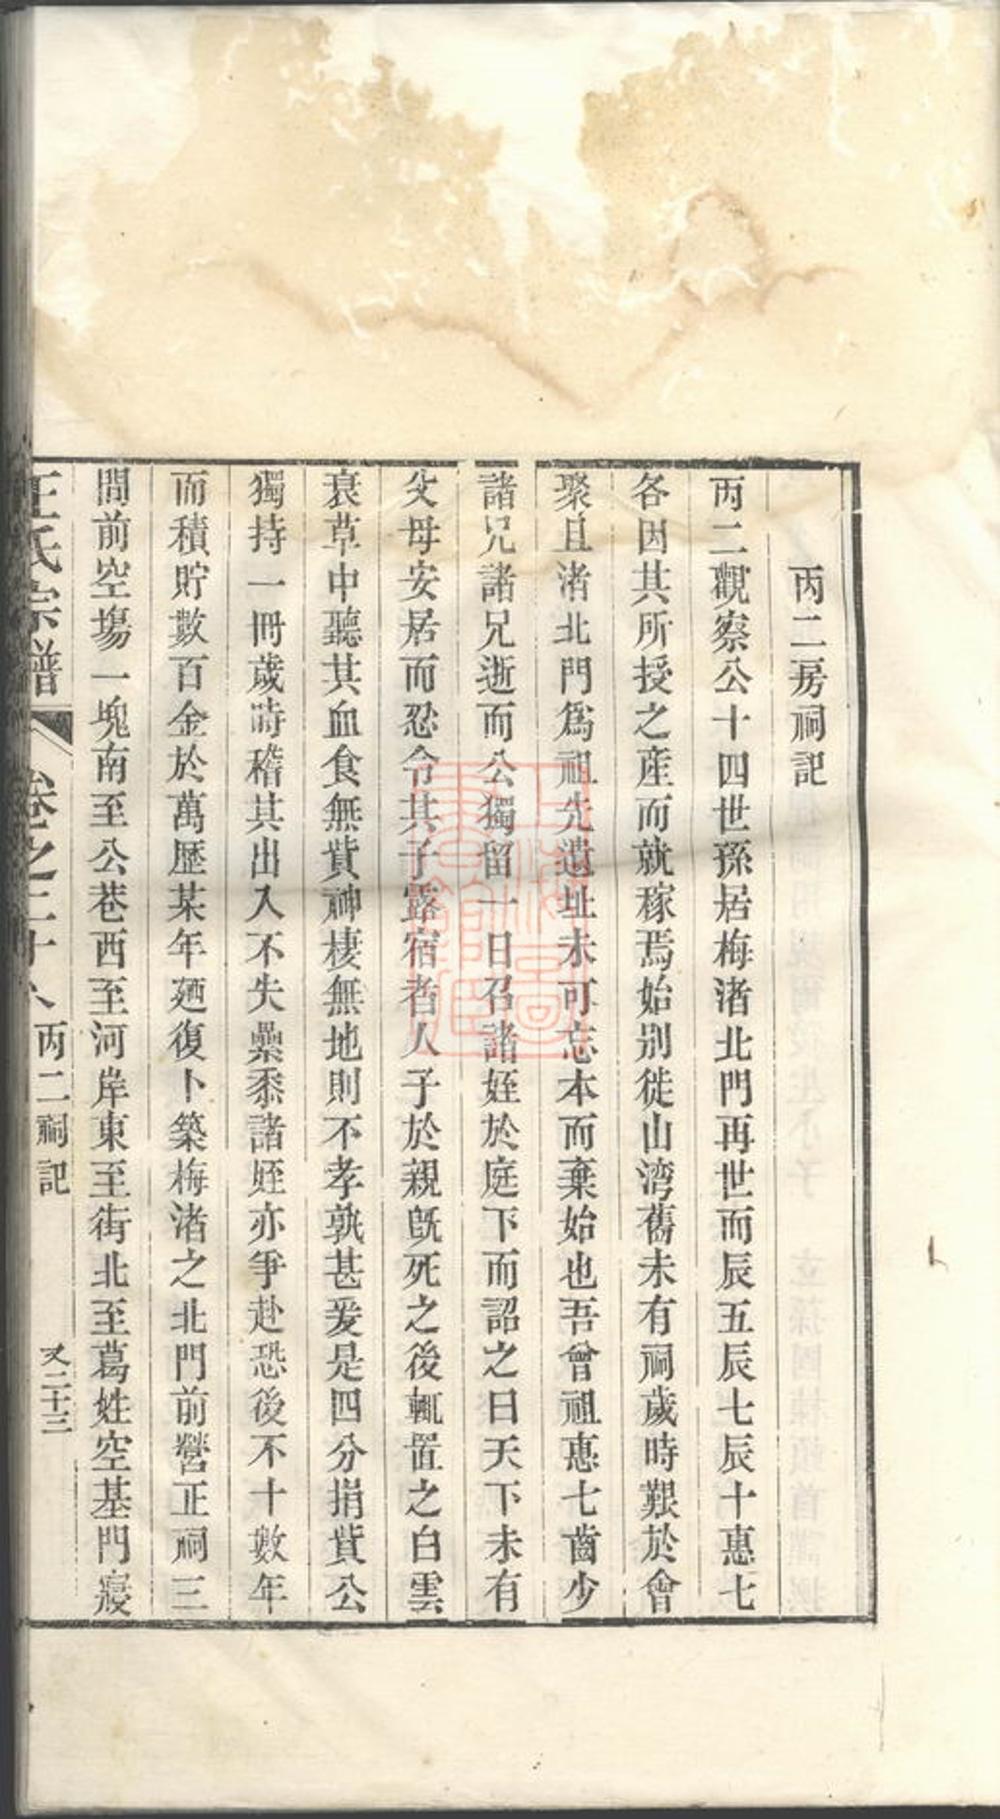 丙二房祠記
丙二觀察公十四世孫居梅渚北門再世而辰五辰七辰十惠七
各因其所授之產而就稼焉始别徙山湾舊未有祠歲時艱於會
聚且渚北門爲祖先遺址未可忘本而棄始也吾曾祖惠七齒少
諸兄諸兄逝而公獨留一日召諸姪於庭下而詔之曰天下未有
父母安居而忍令其子露宿者人子於親旣死之後輒置之白雲
衰草中聽其血食無貲神棲無地則不孝孰甚爰是四分捐貲公
獨持一冊歲時稽其出入不失纍黍諸姪亦爭赴恐後不十數年
而積貯數百金於萬歷某年廼復卜築梅渚之北門前營正祠三
間前空塲一塊南至公巷西至河岸東至街北至葛姓空基門寢
王氏宗譜 卷之二十八 丙二祠記 又二十三
上海圖書館藏